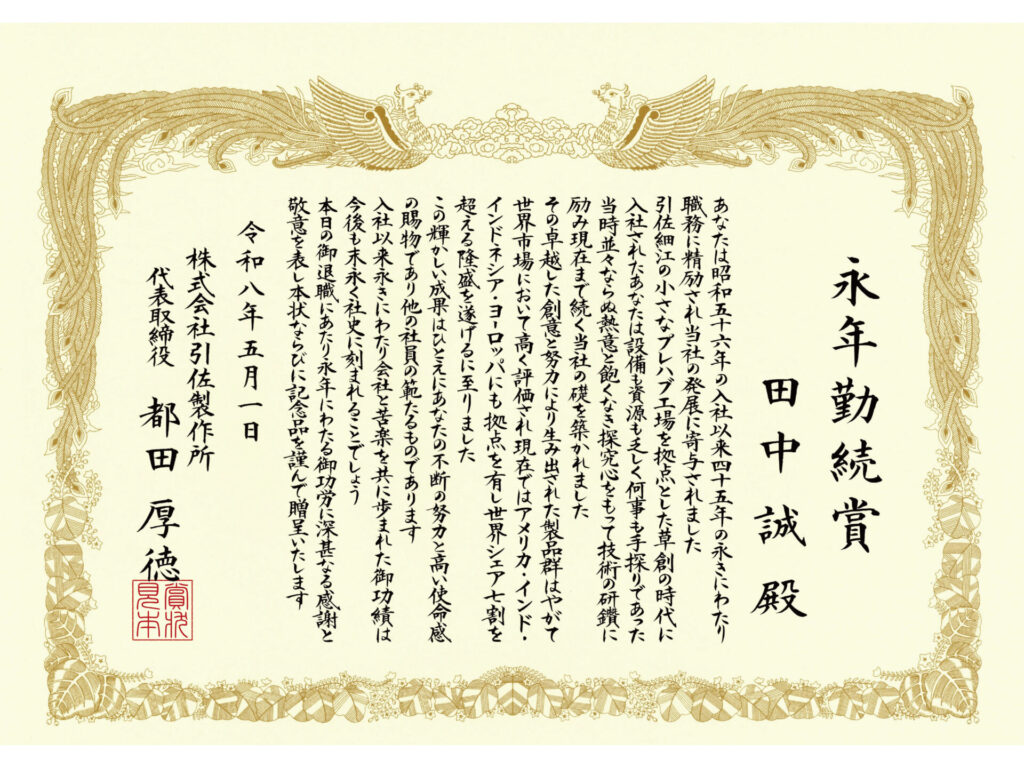 永年勤続賞
田中誠殿
あなたは昭和五十六年の入社以来四十五年の永きにわたり
職務に精励され当社の発展に寄与されました
引佐細江の小さなプレハブ工場を拠点とした草創の時代に
入社されたあなたは設備も資源も乏しく何事も手探りであった
当時並々ならぬ熱意と飽くなき探究心をもって技術の研鑽に
励み現在まで続く当社の礎を築かれました
その卓越した創意と努力により生み出された製品群はやがて
世界市場において高く評価され現在ではアメリカ・インド・
インドネシア・ヨーロッパにも拠点を有し世界シェア七割を
超える隆盛を遂げるに至りました
この輝かしい成果はひとえにあなたの不断の努力と高い使命感
の賜物であり他の社員の範たるものであります
入社以来永きにわたり会社と苦楽を共に歩まれた御功績は
今後も末永く社史に刻まれることでしょう
本日の御退職にあたり永年にわたる御功労に深甚なる感謝と
敬意を表し本状ならびに記念品を謹んで贈呈いたします
令和八年五月一日
株式会社引佐製作所
代表取締役 都田厚徳
賞状
見本